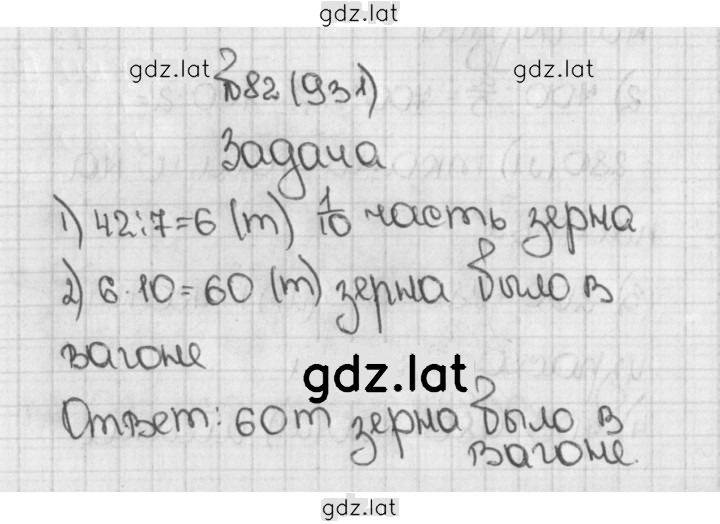 gdz.lat
gdz.lat gdz.lat
№82 (931)
Задача
1) 42:7=6 (т) 1/10 часть зерна
2) 6·10=60 (т) зерна было в
вагоне
gdz.lat
Ответ: 60т зерна было в
вагоне.
gdz.lat